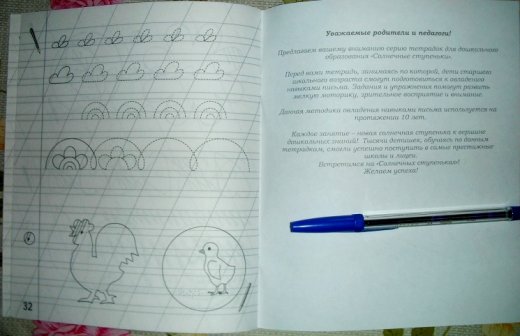 32
Уважаемые родители и педагоги!
Предлагаем вашему вниманию серию тетрадок для дошкольного
образования «Солнечные ступеньки».
Перед вами тетрадь, занимаясь по которой, дети старшего
школьного возраста смогут подготовиться к овладению
навыками письма. Задания и упражнения помогут развить
мелкую моторику, зрительное восприятие и внимание.
Данная методика овладения навыками письма используется на
протяжении 10 лет.
Каждое занятие – новая солнечная ступенька к вершине
дошкольных знаний! Тысячи детишек, обучаясь по данным
тетрадкам, смогли успешно поступить в самые престижные
школы и лицеи.
Встретимся на «Солнечных ступеньках»!
Желаем успеха!